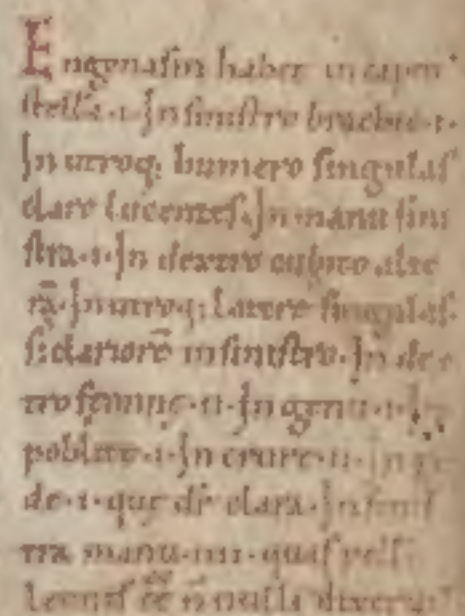 Engonasin habet in capite
stellā·i·In sinistro brachio·i·
In utroq; humero singulas
clare lucentes. In manu sini
stra·i·In dextro cubito alte
rā·In utroq; latere singulas·
s; clariorē in sinistro·In dex
tro femine·ii·In genu·i·In
poblite·i·In crure·ii·In pe
de·i·que dr̄ clara·In sinis
tra manu·iiii·quas pellē
Leonis eē n̄nulli dixerunt